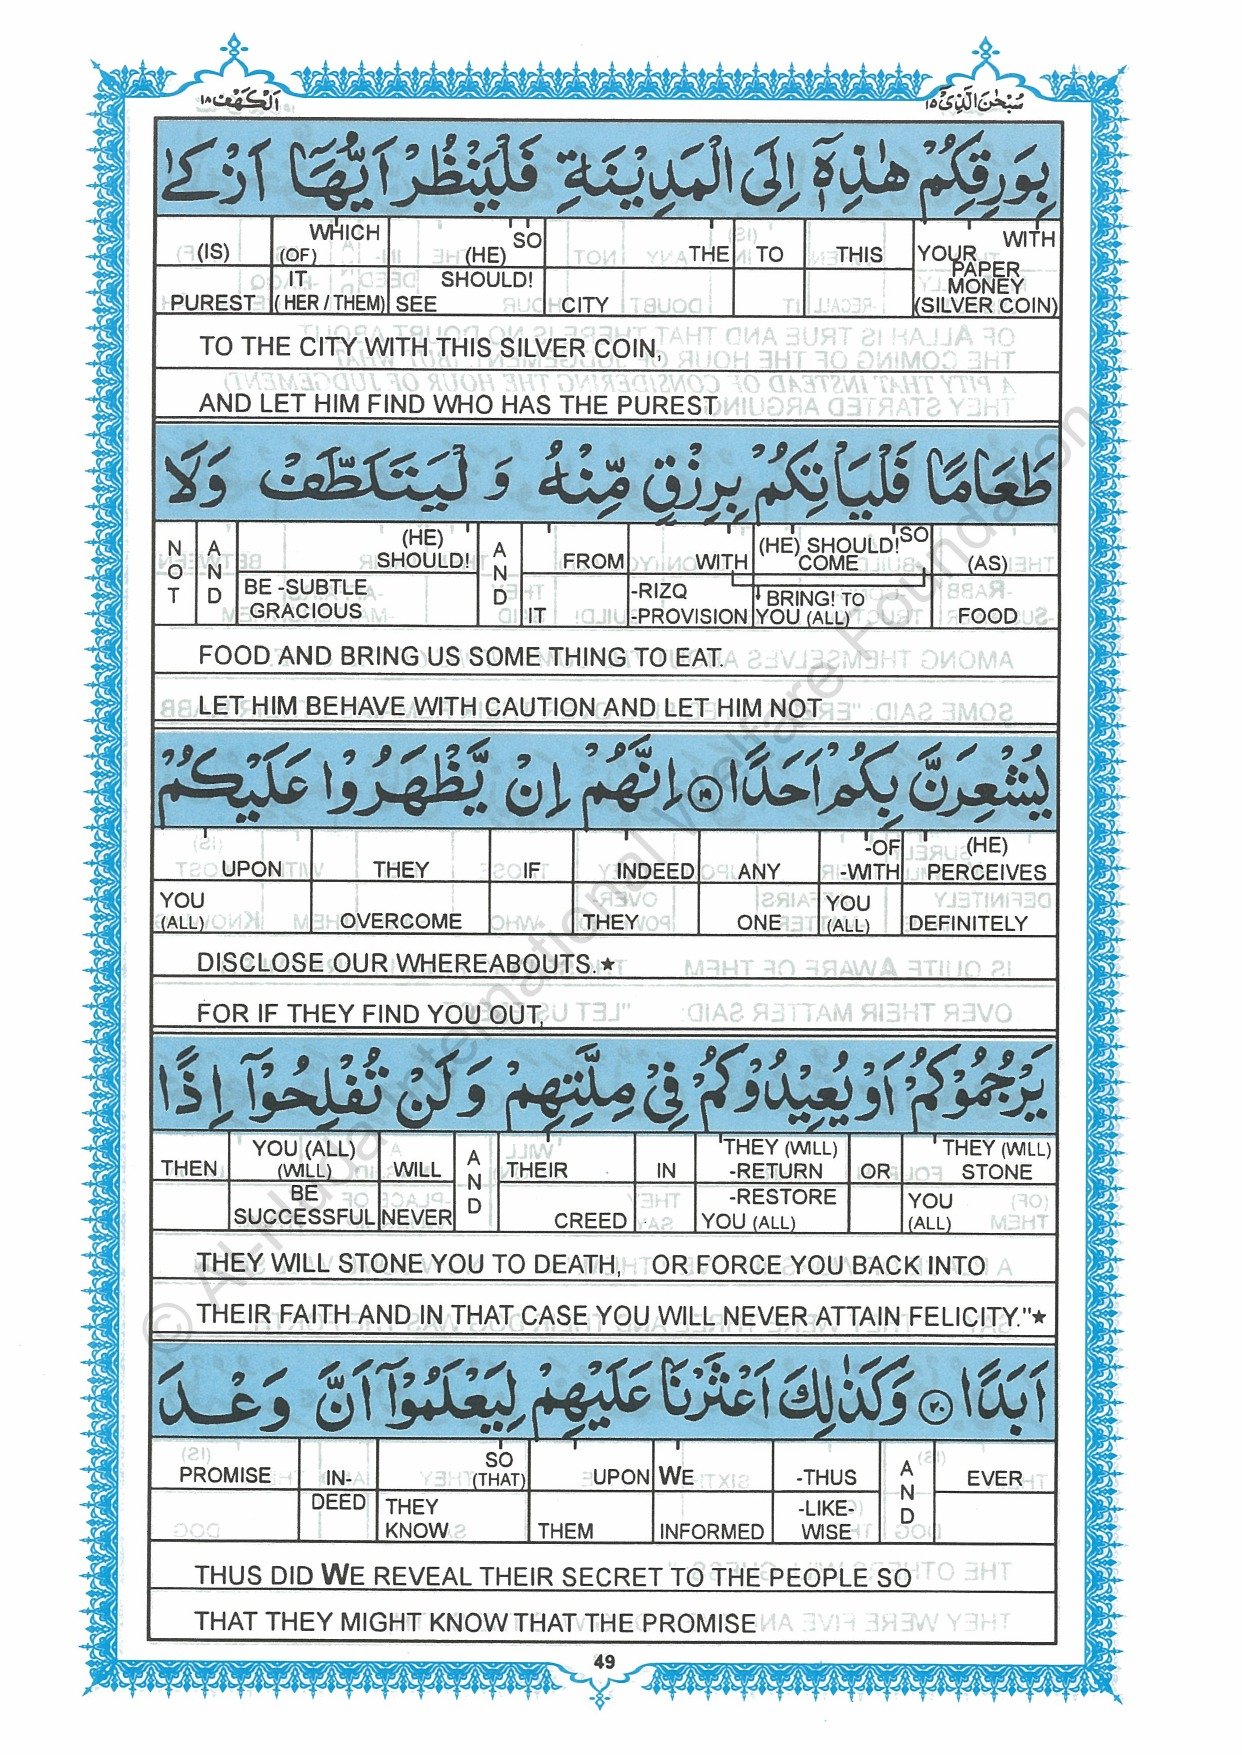 سُبْحٰنَ الَّذِيْٓ ١٥
اَلْكَهْف ١٨
بِوَرِقِكُمْ هٰذِهٖٓ اِلَى الْمَدِيْنَةِ فَلْيَنْظُرْ اَيُّهَآ اَزْكٰى
WITH YOUR PAPER MONEY (SILVER COIN) THIS TO THE CITY SO (HE) SHOULD! SEE WHICH (OF) IT (HER / THEM) (IS) PUREST
TO THE CITY WITH THIS SILVER COIN,
AND LET HIM FIND WHO HAS THE PUREST
طَعَامًا فَلْيَاْتِكُمْ بِرِزْقٍ مِّنْهُ وَلْيَتَلَطَّفْ وَلَا
(AS) FOOD SO (HE) SHOULD! COME BRING! TO YOU (ALL) WITH -RIZQ -PROVISION FROM IT AND (HE) SHOULD! BE -SUBTLE GRACIOUS AND NOT
FOOD AND BRING US SOME THING TO EAT.
LET HIM BEHAVE WITH CAUTION AND LET HIM NOT
يُشْعِرَنَّ بِكُمْ اَحَدًا ١٩ اِنَّهُمْ اِنْ يَّظْهَرُوْا عَلَيْكُمْ
(HE) PERCEIVES DEFINITELY -OF -WITH YOU (ALL) ANY ONE INDEED THEY IF THEY OVERCOME UPON YOU (ALL)
DISCLOSE OUR WHEREABOUTS.★
FOR IF THEY FIND YOU OUT,
يَرْجُمُوْكُمْ اَوْ يُعِيْدُوْكُمْ فِيْ مِلَّتِهِمْ وَلَنْ تُفْلِحُوْٓا اِذًا
THEY (WILL) STONE YOU (ALL) OR THEY (WILL) -RETURN -RESTORE YOU (ALL) IN THEIR CREED AND WILL NEVER YOU (ALL) (WILL) BE SUCCESSFUL THEN
THEY WILL STONE YOU TO DEATH, OR FORCE YOU BACK INTO
THEIR FAITH AND IN THAT CASE YOU WILL NEVER ATTAIN FELICITY."★
اَبَدًا ٢٠ وَكَذٰلِكَ اَعْثَرْنَا عَلَيْهِمْ لِيَعْلَمُوْٓا اَنَّ وَعْدَ
EVER AND -THUS -LIKE-WISE WE INFORMED UPON THEM SO (THAT) THEY KNOW IN-DEED PROMISE
THUS DID WE REVEAL THEIR SECRET TO THE PEOPLE SO
THAT THEY MIGHT KNOW THAT THE PROMISE
49
© Al-Huda International Welfare Foundation